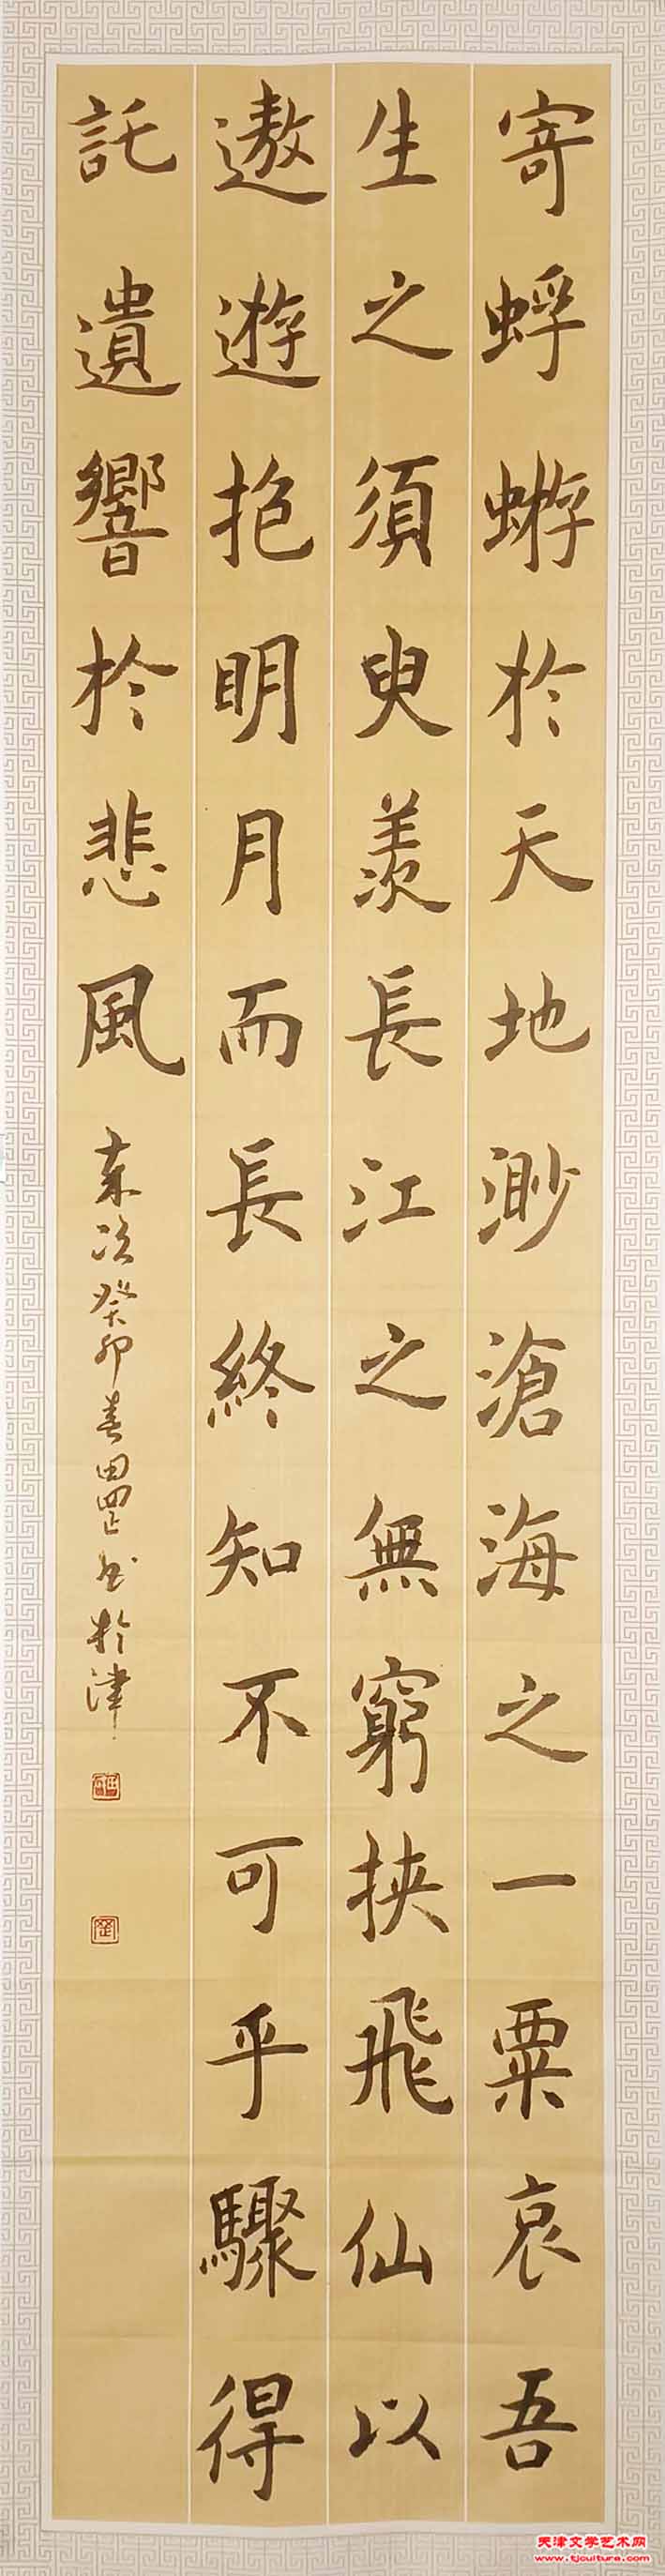 寄蜉蝣於天地渺滄海之一粟哀吾
生之須臾羨長江之無窮挾飛仙以
遨遊抱明月而長終知不可乎驟得
託遺響於悲風
歲次癸卯春田罡書於津
天津文学艺术网
www.tjculture.com